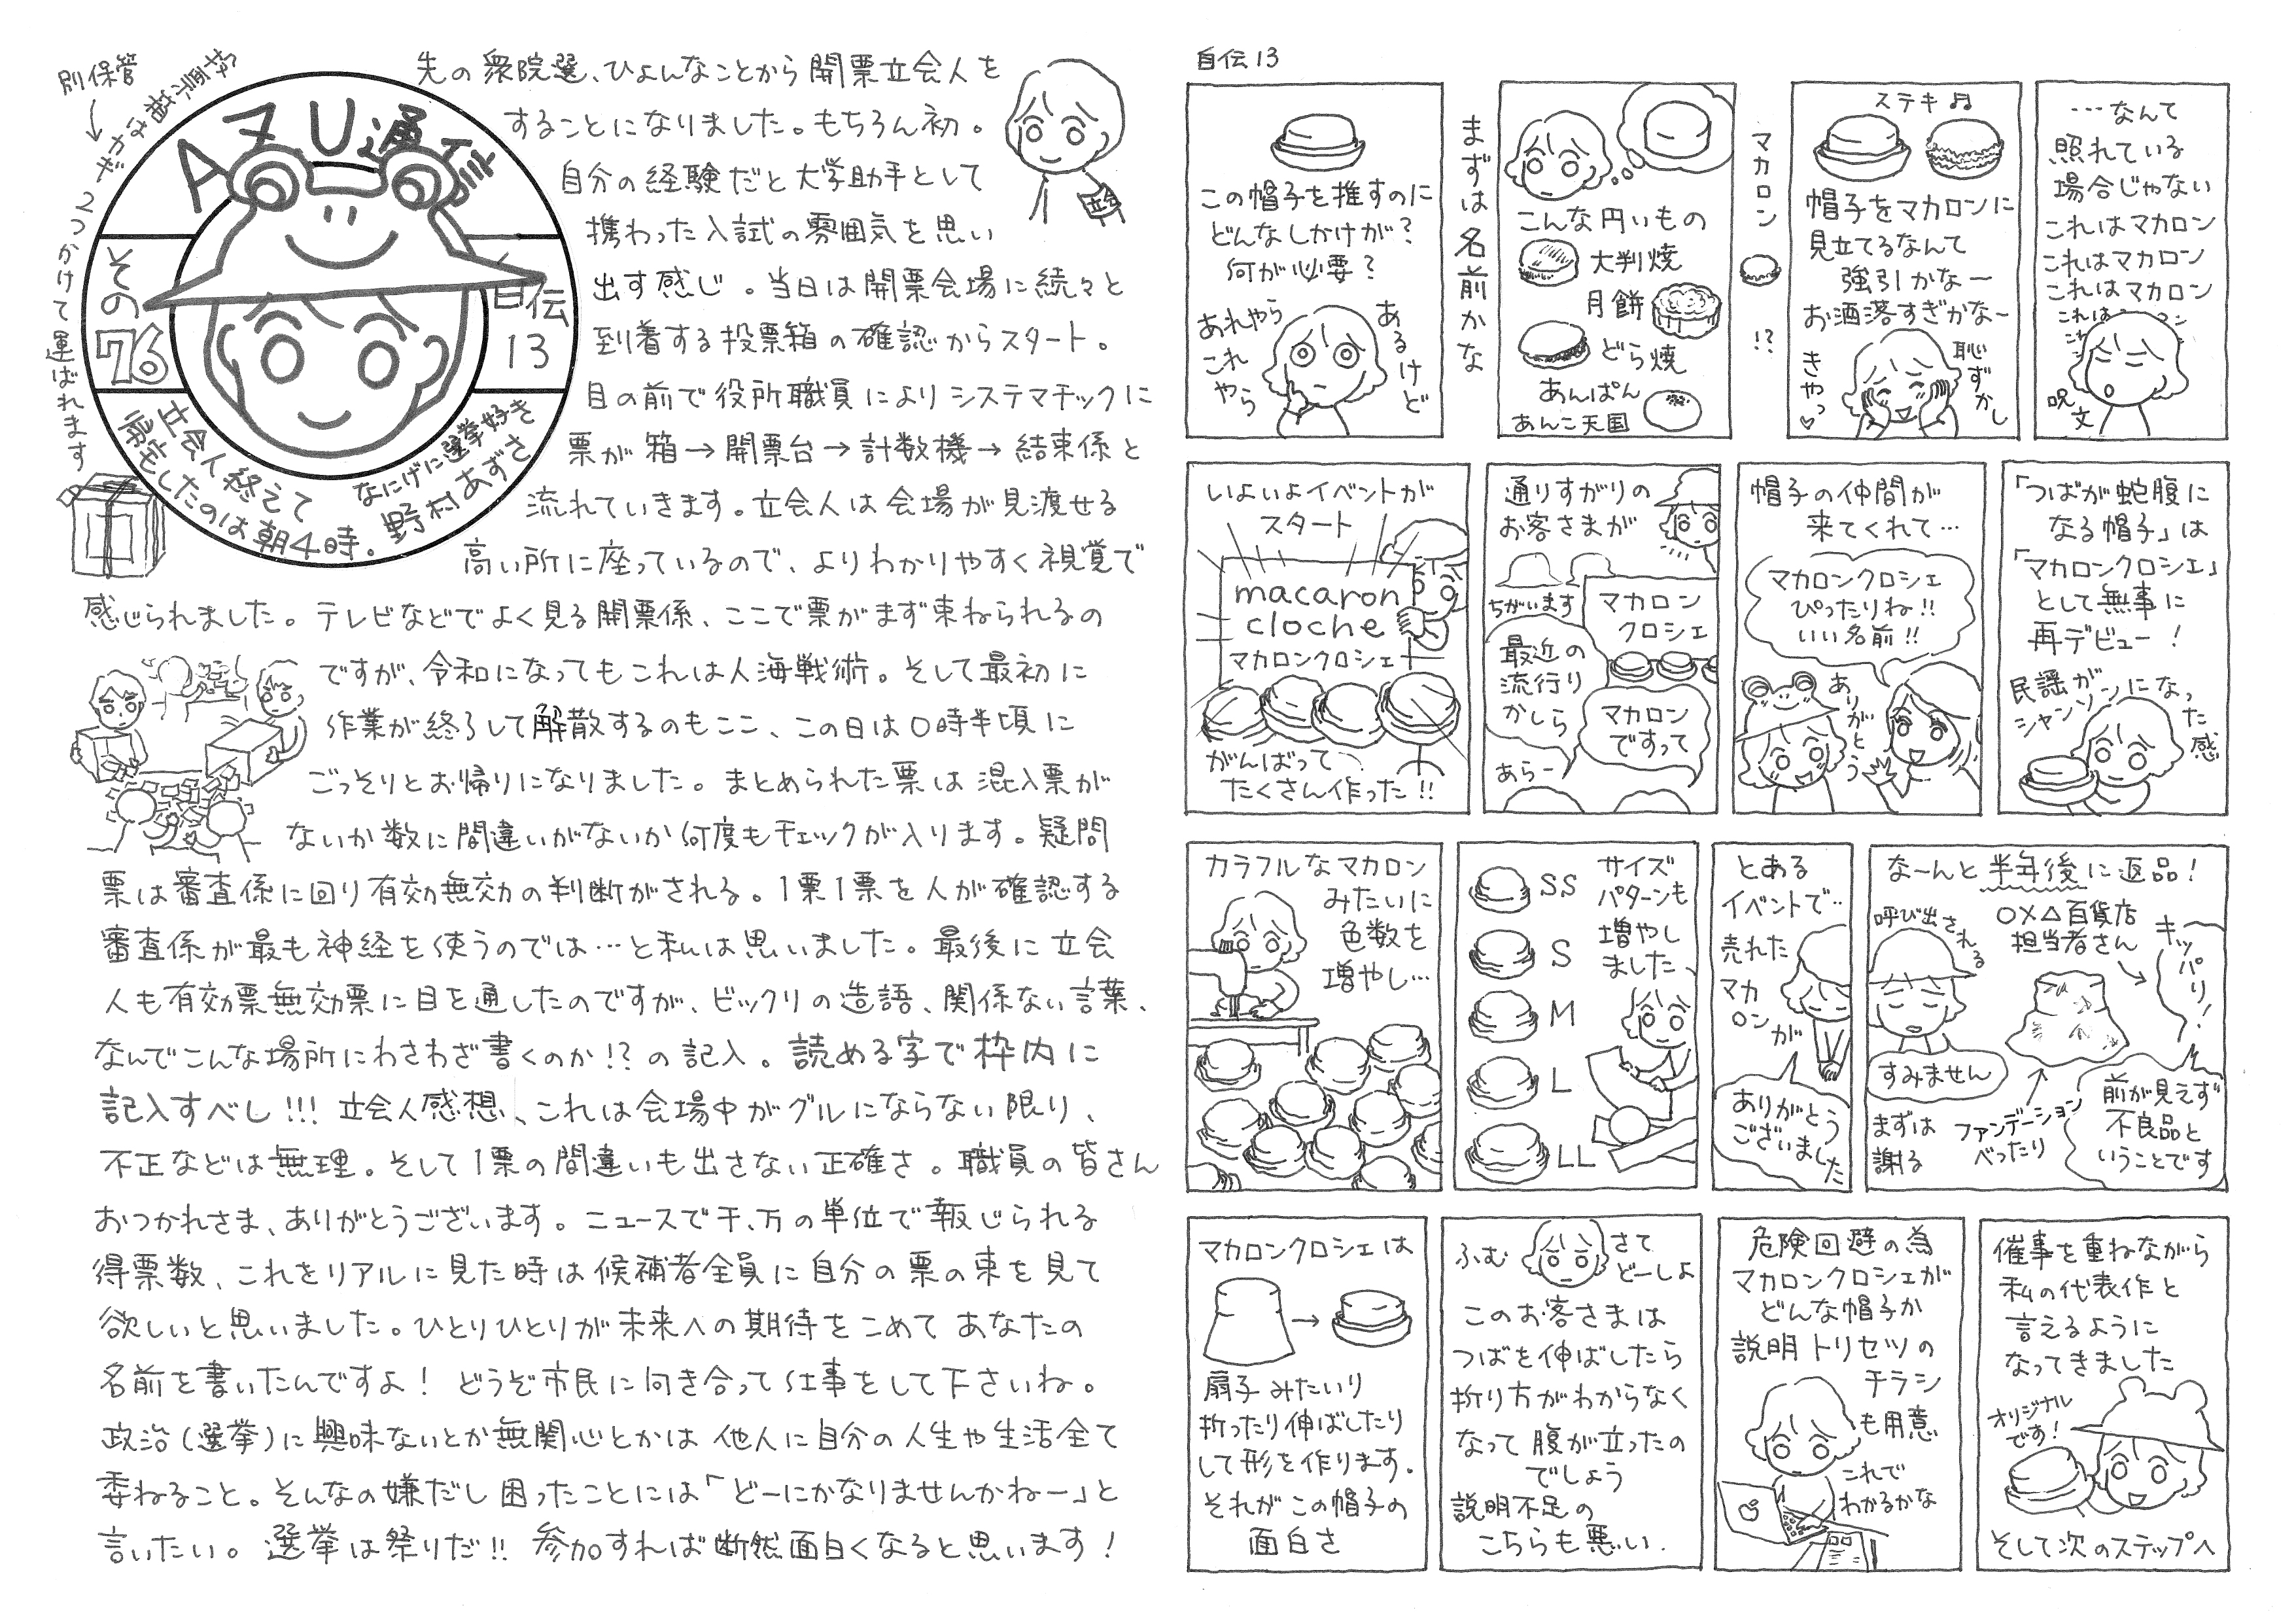 AZU通信
その76
自伝13
立会人終えて
帰宅したのは朝4時。
なにげに選挙好き
野村あずさ
投票箱はカギ2つかけて運ばれます
別保管
先の衆院選、ひょんなことから開票立会人を
することになりました。もちろん初。
自分の経験だと大学助手として
携わった入試の雰囲気を思い
出す感じ。当日は開票会場に続々と
到着する投票箱の確認からスタート。
目の前で役所職員によりシステマチックに
票が箱→開票台→計数機→結束係と
流れていきます。立会人は会場が見渡せる
高い所に座っているので、よりわかりやすく視覚で
感じられました。テレビなどでよく見る開票係、ここで票がまず束ねられるの
ですが、令和になってもこれは人海戦術。そして最初に
作業が終了して解散するのもここ、この日は0時半頃に
ごっそりとお帰りになりました。まとめられた票は混入票が
ないか数に間違いがないか何度もチェックが入ります。疑問
票は審査係に回り有効無効の判断がされる。1票1票を人が確認する
審査係が最も神経を使うのでは…と私は思いました。最後に立会
人も有効票無効票に目を通したのですが、ビックリの造語、関係ない言葉、
なんでこんな場所にわざわざ書くのか!?の記入。読める字で枠内に
記入すべし!!! 立会人感想、これは会場中がグルにならない限り、
不正などは無理。そして1票の間違いも出さない正確さ。職員の皆さん
おつかれさま、ありがとうございます。ニュースで千、万の単位で報じられる
得票数、これをリアルに見た時は候補者全員に自分の票の束を見て
欲しいと思いました。ひとりひとりが未来への期待をこめてあなたの
名前を書いたんですよ! どうぞ市民に向き合って仕事をして下さいね。
政治(選挙)に興味ないとか無関心とかは他人に自分の人生や生活全て
委ねること。そんなの嫌だし困ったことには「どーにかなりませんかねー」と
言いたい。選挙は祭りだ!! 参加すれば断然面白くなると思います!
自伝13
この帽子を推すのに
どんなしかけが?
何が必要?
あれやら
これ
やら
あるけど
まずは名前かな
こんな円いもの
大判焼
月餅
どら焼
あんぱん
あんこ天国
マカロン!?
ステキ♫
帽子をマカロンに
見立てるなんて
強引かなー
お洒落すぎかなー
きゃっ♡
恥ずかし
…なんて
照れている
場合じゃない
これはマカロン
これはマカロン
これはマカロン
呪文
いよいよイベントが
スタート
macaron
cloche
マカロンクロシェ
がんばって
たくさん作った!!
通りすがりの
お客さまが
ちがいます
マカロン
クロシェ
最近の
流行り
かしら
マカロン
ですって
あらー
帽子の仲間が
来てくれて…
マカロンクロシェ
ぴったりね!!
いい名前!!
ありがとう
「つばが蛇腹に
なる帽子」は
「マカロンクロシェ」
として無事に
再デビュー!
民謡が
シャンソンになった感
カラフルなマカロン
みたいに
色数を
増やし…
サイズ
パターンも
増やし
ました、
SS
S
M
L
LL
とある
イベントで…
売れた
マカロンが
ありがとう
ございました
なーんと半年後に返品!
呼び出される
○×△百貨店
担当者さん
キッパリ!
すみません
まずは
謝る
ファンデーション
べったり
前が見えず
不良品と
いうことです
マカロンクロシェは
扇子みたいり
折ったり伸ばしたり
して形を作ります。
それがこの帽子の
面白さ
ふむ
さて
どーしよ
このお客さまは
つばを伸ばしたら
折り方がわからなく
なって腹が立ったの
でしょう
説明不足の
こちらも悪い.
危険回避の為
マカロンクロシェが
どんな帽子か
説明トリセツの
チラシ
も用意
これで
わかるかな
催事を重ねながら
私の代表作と
言えるように
なってきました
オリジナル
です!
そして次のステップへ